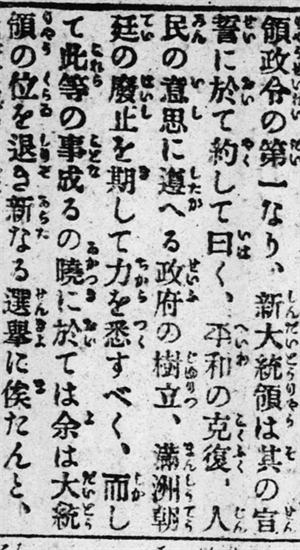 領政令の第一なり、新大統領は其の宣
誓に於て約して曰く、平和の克復、人
民の意思に遵へる政府の樹立、滿洲朝
廷の廢止を期して力を悉すべく、而し
て此等の事成るの曉に於ては余は大統
領の位を退き新なる選擧に俟たんと、